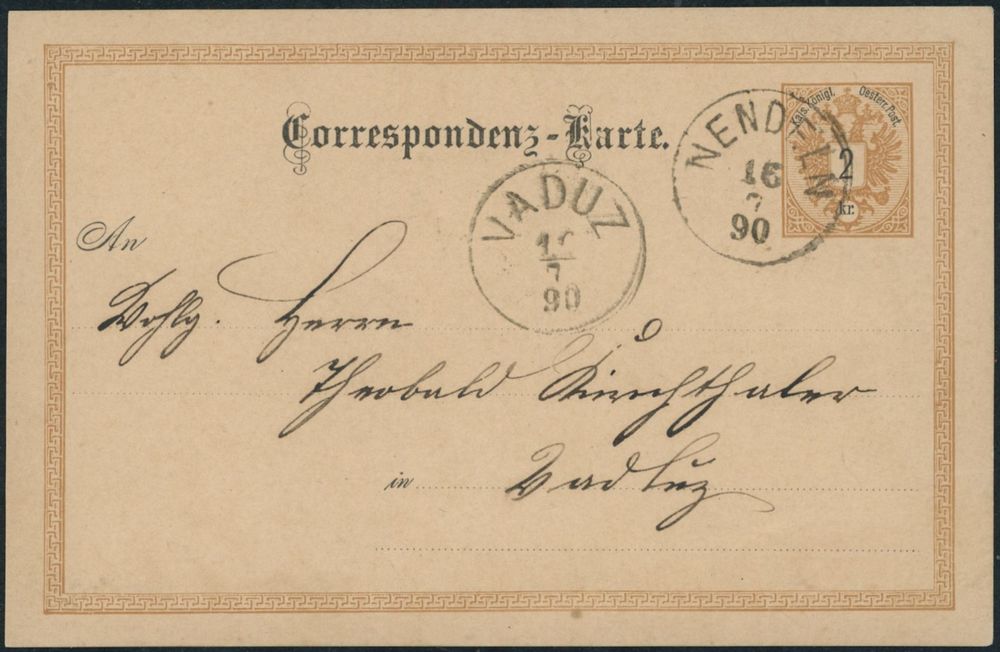 Correspondenz-Karte.
Kais. Königl. Oesterr. Post.
2
kr.
NENDELN
16
7
90
VADUZ
16
7
90
An
Wohlg. Herrn
Theobald
in Vadutz